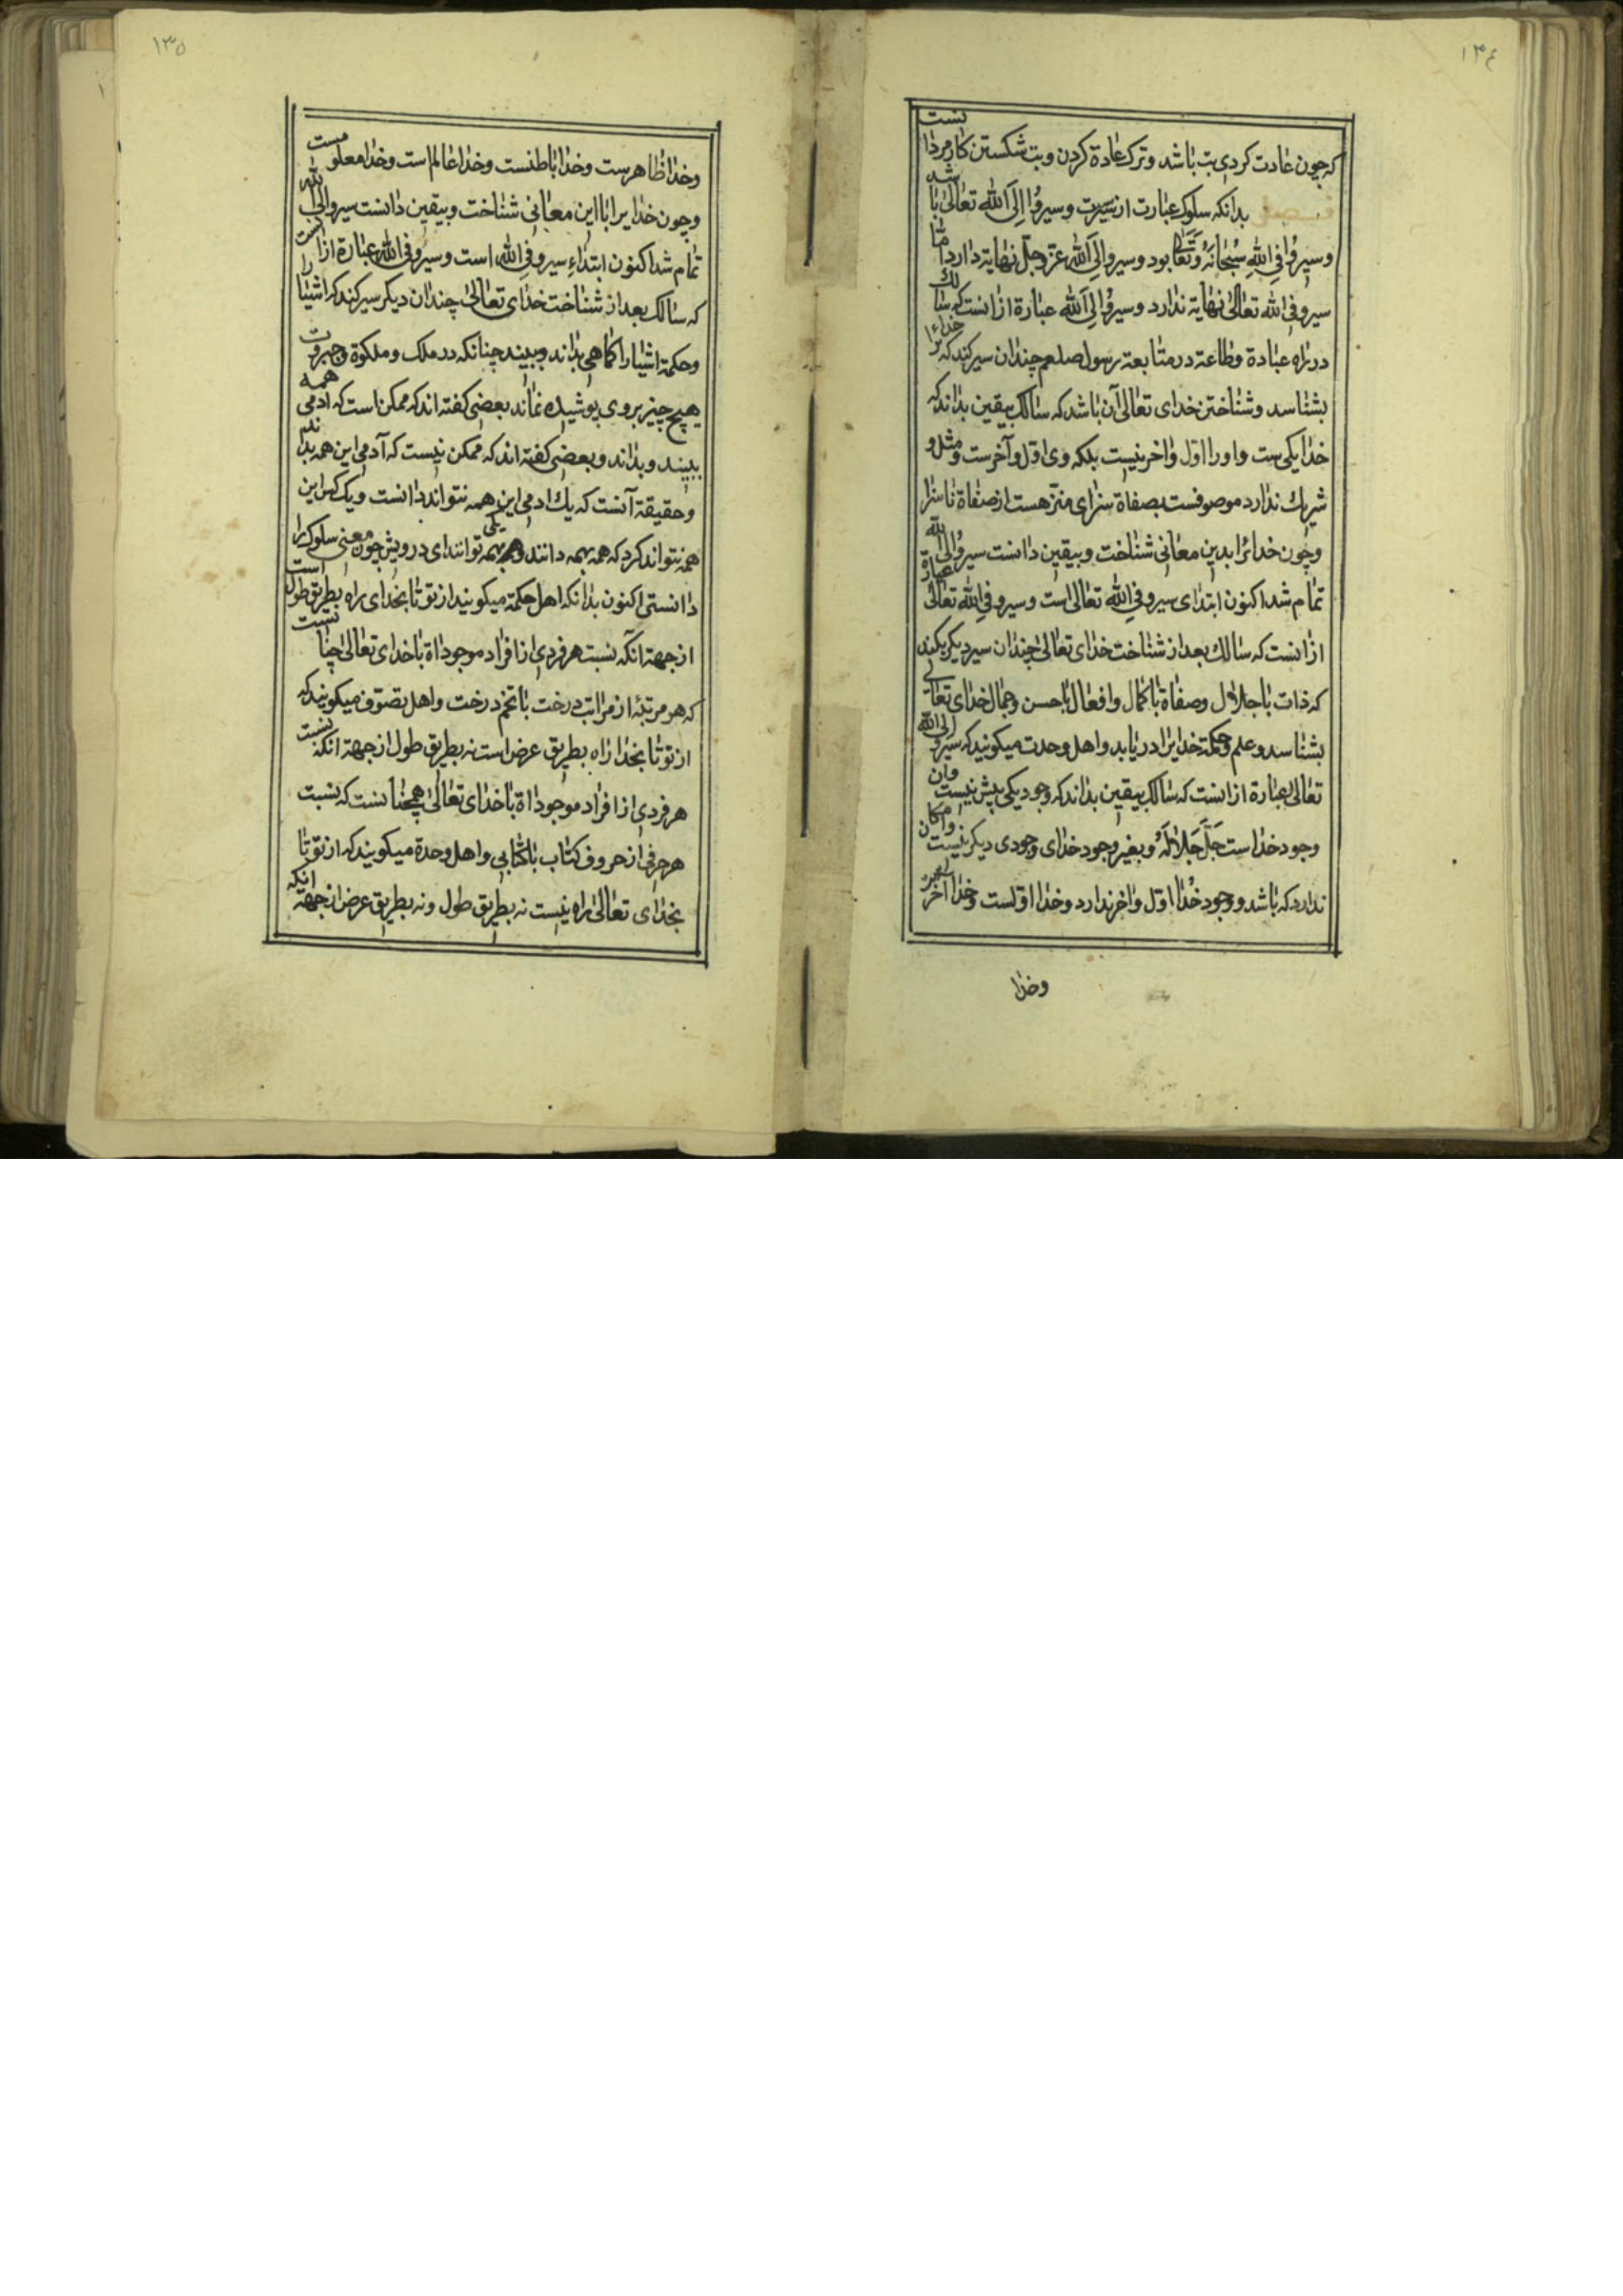 ١٣٤
که چون عادت کردی بت باشد و ترک عادة کردن و بت شکستن کار مردانست
فصل بدانکه سلوک عبارت از سیرت و سیروا الی الله تعالی باشد
و سیروا فی الله سبحانه و تعا بود و سیرو الی الله عز و جل نهایة دارد اما
سیرو فی الله تعالی نهایة ندارد و سیروا الی الله عبارة از انست که سالک
در راه عبادة و طاعة در متابعة رسول صلعم چندان سیر کند که خدایرا
بشناسد و شناختن خدای تعالی آن باشد که سالک بیقین بداند که
خدا یکی ست و اورا اول و اخر نیست بلکه وی اول و آخرست و مثل و
شریک ندارد موصوفست بصفاة سزای منزهست از صفاة ناسزا
و چون خدائرا بدین معانی شناخت و بیقین دانست سیروا الی الله
تمام شد اکنون ابتدای سیرو فی الله تعالی است و سیرو فی الله تعالی عبارة
از انست که سالک بعد از شناخت خدای تعالی چندان سیر دیکر بکند
که ذات با جلال و صفاة با کمال و افعال با حسن و جمال خدای تعالی
بشناسد و علم و حکمة خدایرا دریابد و اهل وحدت میکویند که سیرو الی الله
تعالی عبارة از انست که سالک بیقین بداند که وجود یکی بیش نیست وان
وجود خداست جل جلاله و بغیر وجود خدای وجودی دیکر نیست وامکان
ندارد که باشد و وجود خدا اول و اخر ندارد و خدا اولست و خدا آخر
وخدا
١٣٥
وخدا ظاهرست وخدا باطنست وخدا عالم است وخدا معلومست
و چون خدایرا با این معانی شناخت و بیقین دانست سیرو الی الله
تمام شد اکنون ابتداء سیرو فی الله است و سیرو فی الله عبارة از انست
که سالک بعد از شناخت خدای تعالی چندان دیکر سیر کند که اشیا را
و حکمة اشیا را کماهی بداند و ببیند چنانکه در ملک و ملکوة و جبروت
هیچ چیز بر وی پوشیده نماند بعضی کفته اند که ممکن است که ادمی همه
ببیند و بداند و بعضی کفته اند که ممکن نیست که آدمی این همه بداند
و حقیقة آنست که یك ادمی این همه نتواند دانست و یک کس این
همه نتواند کرد که همه بهمه دانند و همه بهمه توانند ای درویش چون معنی سلوک را
دانستی اکنون بدانکه اهل حکمة میکویند از تو تا بخدای راه بطریق طول است
از جهة انکه نسبت هر فردی از افراد موجوداة با خدای تعالی چنانست
که هر مرتبه از مراتب درخت با تخم درخت و اهل تصوف میکویند که
از تو تا بخدا راه بطریق عرض است نه بطریق طول از جهة انکه نسبت
هر فردی از افراد موجوداة با خدای تعالی همچنانست که نسبت
هر حرفی از حروف کتاب با کتابی و اهل وحدة میکویند که از تو تا
بخدای تعالی راه نیست نه بطریق طول و نه بطریق عرض از جهة انکه